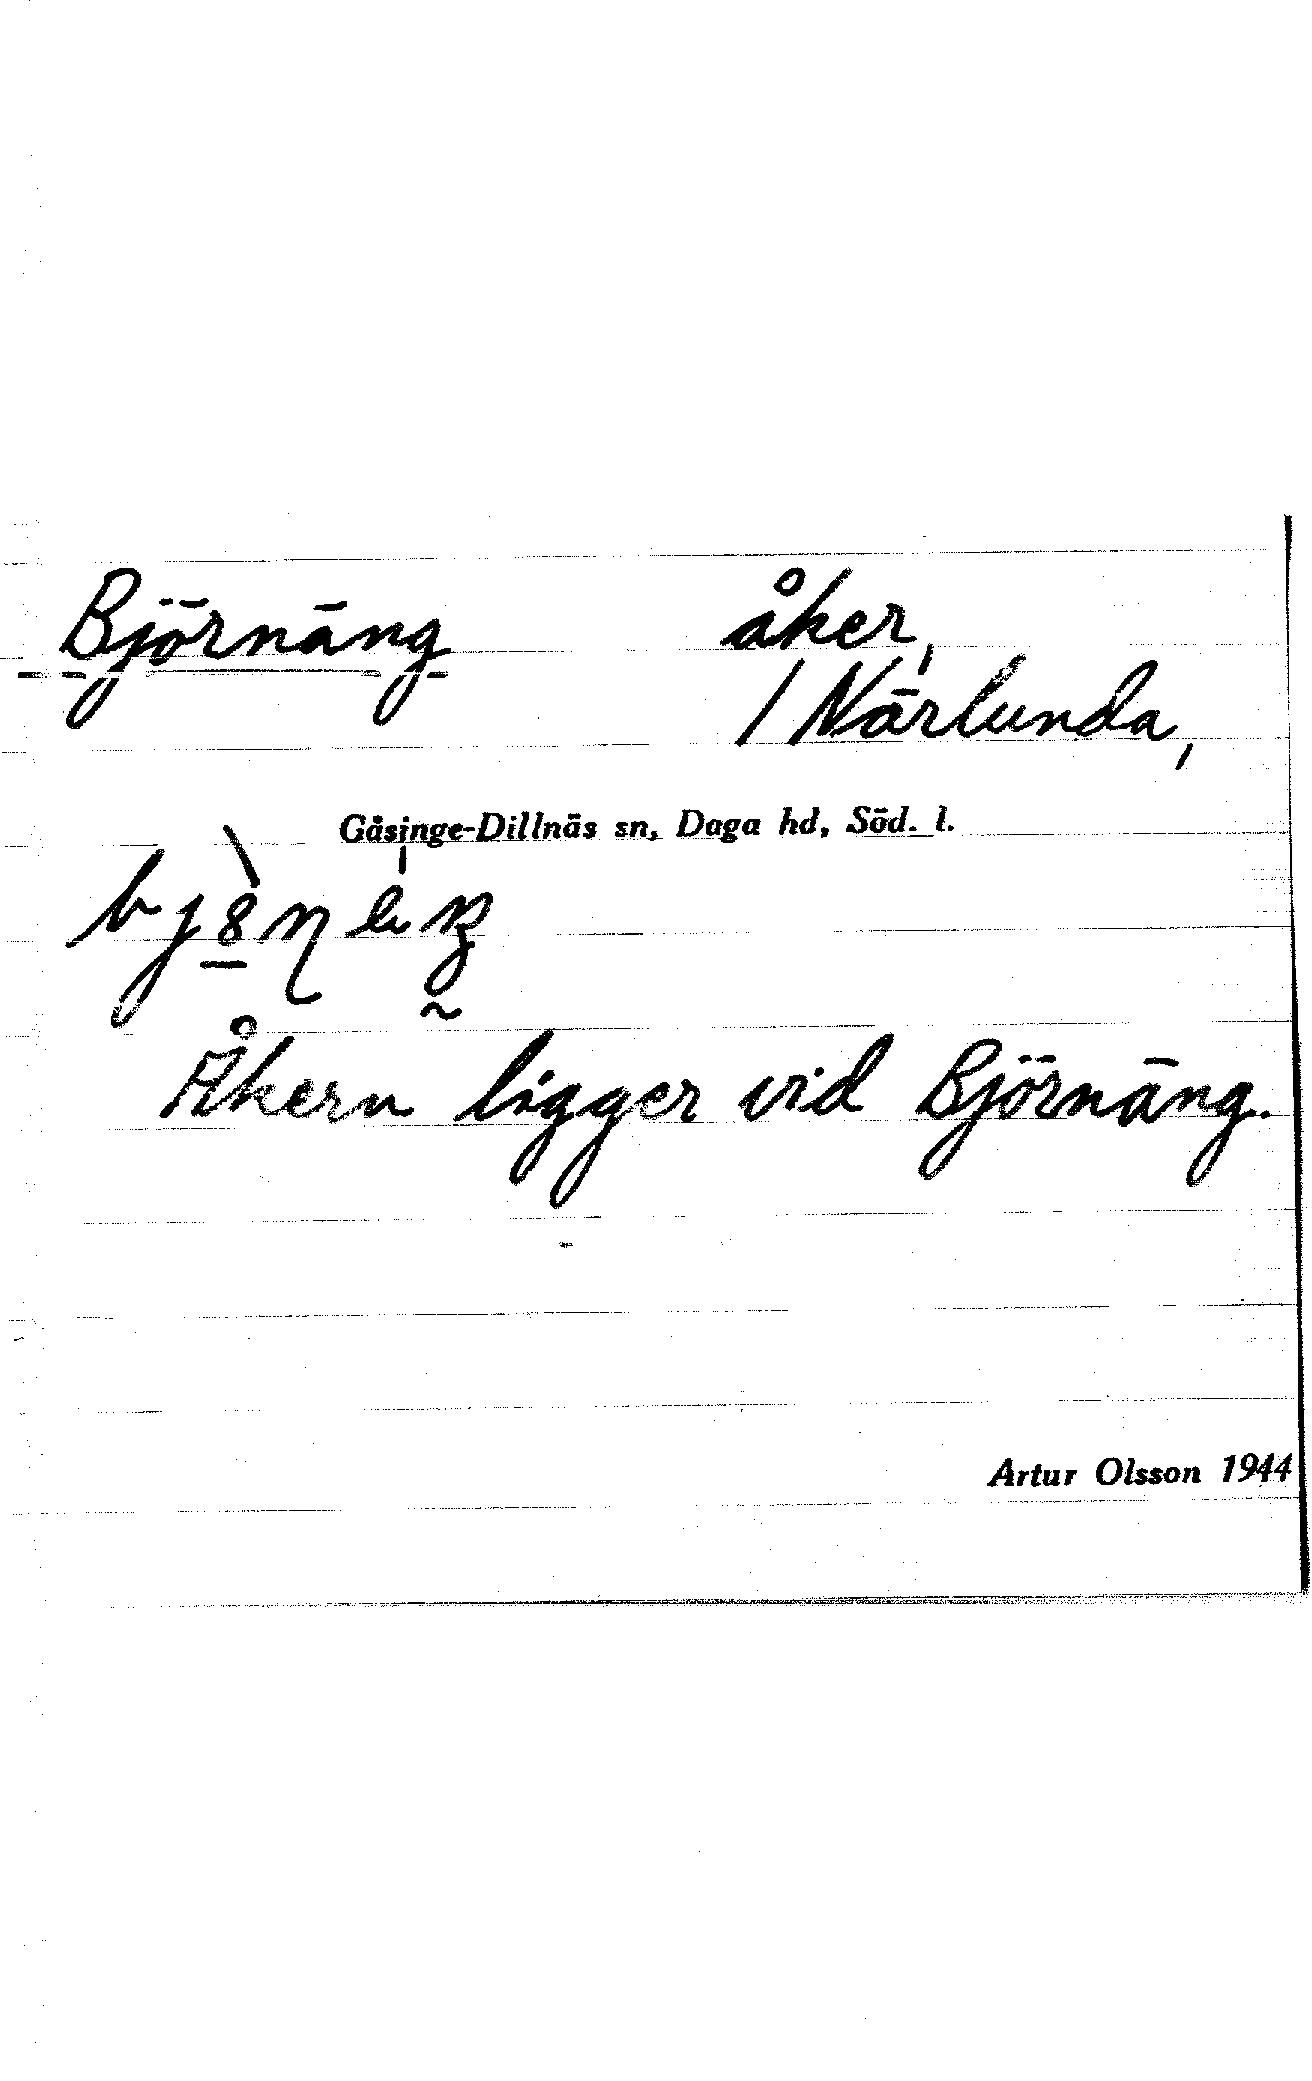 Björnäng åker,
/ Närlunda,
Gåsinge-Dillnäs sn, Daga hd, Söd. l.
Åkern ligger vid Björnäng.
Artur Olsson 1944